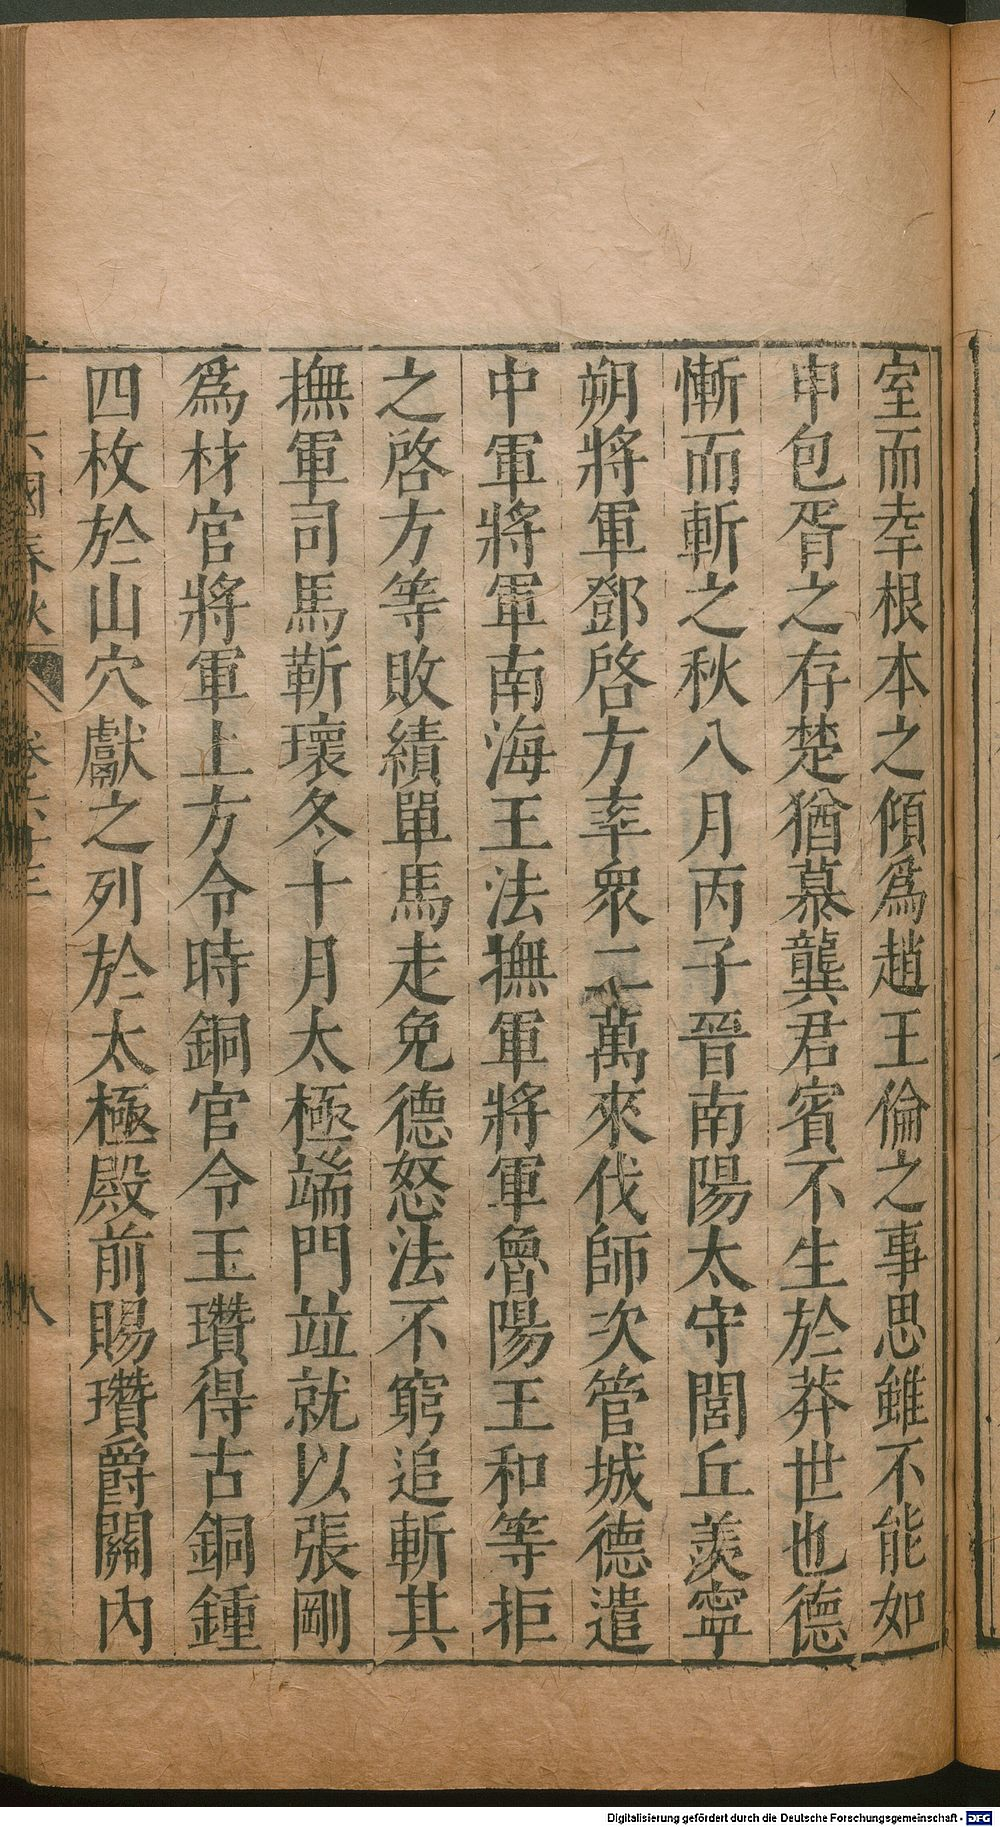 室而幸根本之傾爲趙王倫之事思雖不能如
申包胥之存楚猶慕龔君賓不生於莽世也德
慚而斬之秋八月丙子晉南陽太守閭丘羨寧
朔將軍鄧啓方率衆二萬來伐師次管城德遣
中軍將軍南海王法撫軍將軍魯陽王和等拒
之啓方等敗績單馬走免德怒法不窮追斬其
撫軍司馬靳瓌冬十月太極端門竝就以張剛
爲材官將軍上方令時銅官令王瓚得古銅鍾
四枚於山穴獻之列於太極殿前賜瓚爵關內
十六國春秋 卷六十三 八
Digitalisierung gefördert durch die Deutsche Forschungsgemeinschaft - DFG